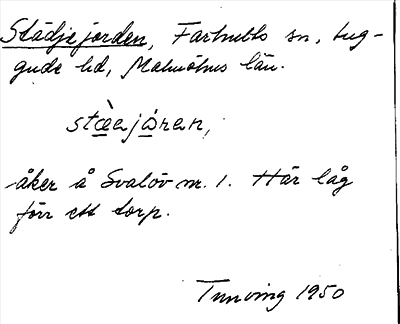 Städjejorden, Farhults sn, Lug-
gude hd, Malmöhus län.
stæ̀ajɷ̀ren,
åker å Svalöv nr. 1. Här låg
förr ett torp.
1950